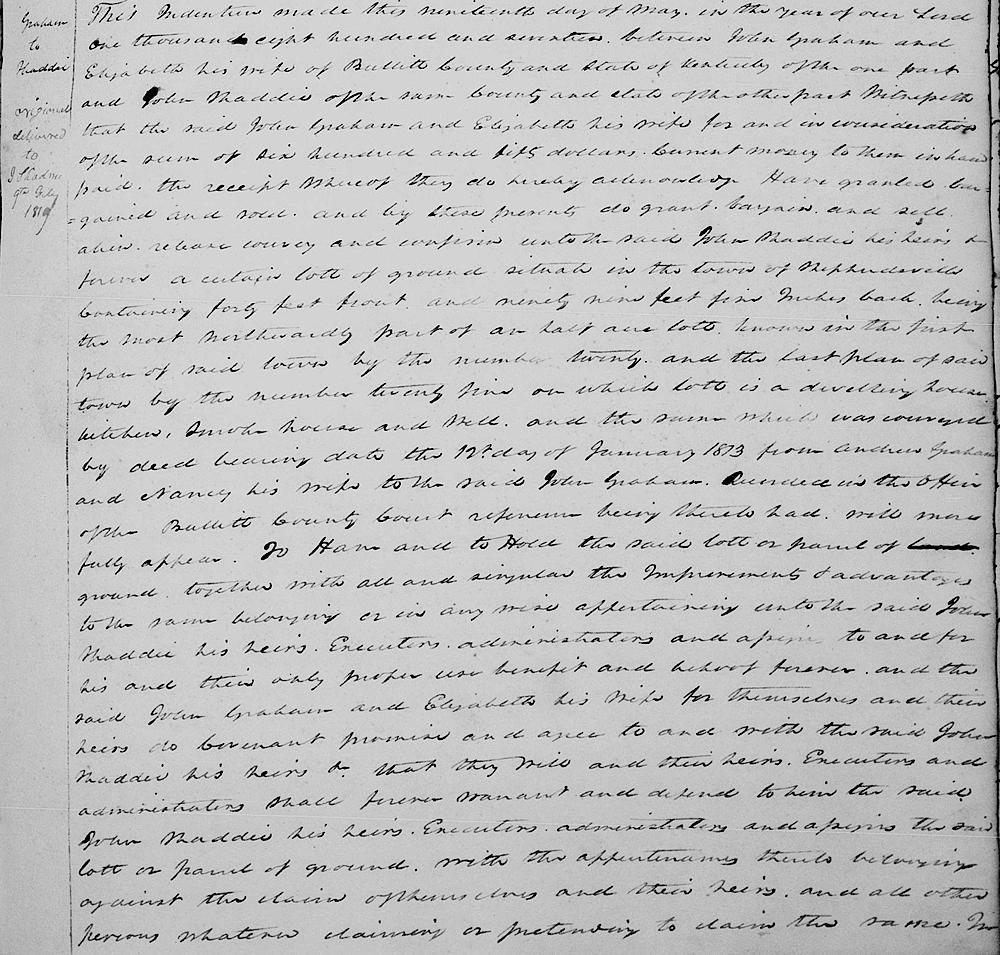 Graham
to
Thaddie
original
delivered
to
J Thaddie
9th Feby
1819
This Indenture made this nineteenth day of May. in the year of our Lord
one thousand eight hundred and seventeen. between John Graham and
Elizabeth his wife of Bullitt County and State of Kentucky of the one part
and John Thaddie of the same County and state of the other part Witnesseth
that the said John Graham and Elizabeth his wife for and in consideration
of the sum of six hundred and fifty dollars. Current money to them in hand
paid. the receipt whereof they do hereby acknowledge Have granted bar-
=gained and sold. and by these presents do grant. bargain. and sell.
alien. release convey and confirm unto the said John Thaddie his heirs &
forever a certain lott of ground situate in the town of Shepherdsville
Containing forty feet front. and ninety nine feet five Inches back. being
the most Northwardly part of an half acre lott. known in the first
plan of said town by the number twenty. and the last plan of said
town by the number twenty five on which lott is a dwelling house.
kitchen, Smoke house and Well. and the same which was conveyed
by deed bearing date the 12th day of January 1813 from Andrew Graham
and Nancy his wife to the said John Graham. Recorded in the Office
of the Bullitt County Court reference being thereto had. will more
fully appear. To Have and to Hold the said lott or parcel of land.
ground. together with all and singular the Improvements & advantages
to the same belonging or in any wise appertaining unto the said John
Thaddie his heirs. Executors. administrators and assigns to and for
his and their only proper use benefit and behoof forever. and the
said John Graham and Elizabeth his wife for themselves and their
heirs do Covenant promise and agree to and with the said John
Thaddie his heirs &c. that they will and their heirs. Executors and
administrators shall forever warrant and defend to him the said
John Thaddie his heirs. Executors. administrators and assigns the said
lott or parcel of ground. with the appertenances thereto belonging
against the claim of themselves and their heirs. and all other
persons whatever claiming or pretending to claim the same. In